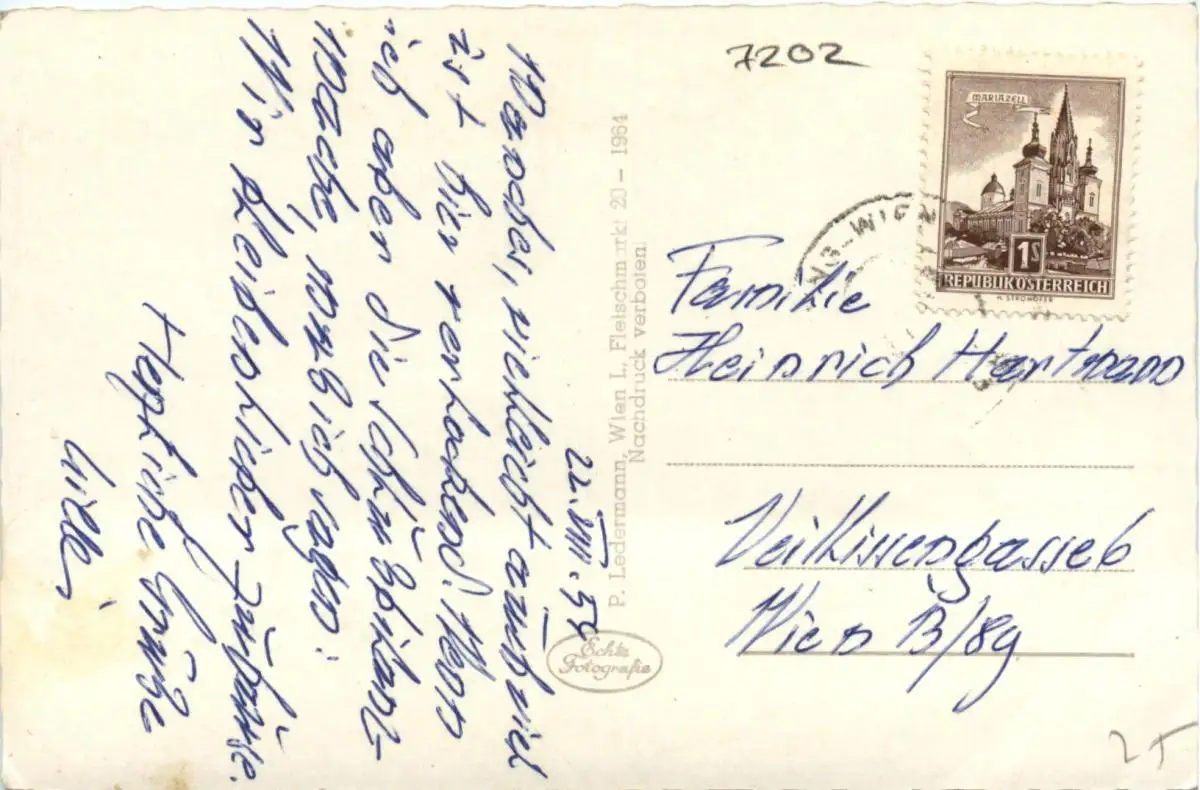 22.VIII.59
Manches, vielleicht auch viel
ist hier verlockend. Wenn
ich aber die Schlußbilanz
mache, muß ich sagen:
Wir bleiben lieber zuhause.
Herzliche Grüße
Willi
P. Ledermann, Wien I., Fleischmarkt 20 - 1964
Nachdruck verboten.
Echte
Fotografie
7202
MARIAZELL
1S
REPUBLIK ÖSTERREICH
H. STROHOFER
WIEN
Familie
Heinrich Hartmann
Veitlissengasse 6
Wien 13/89
25